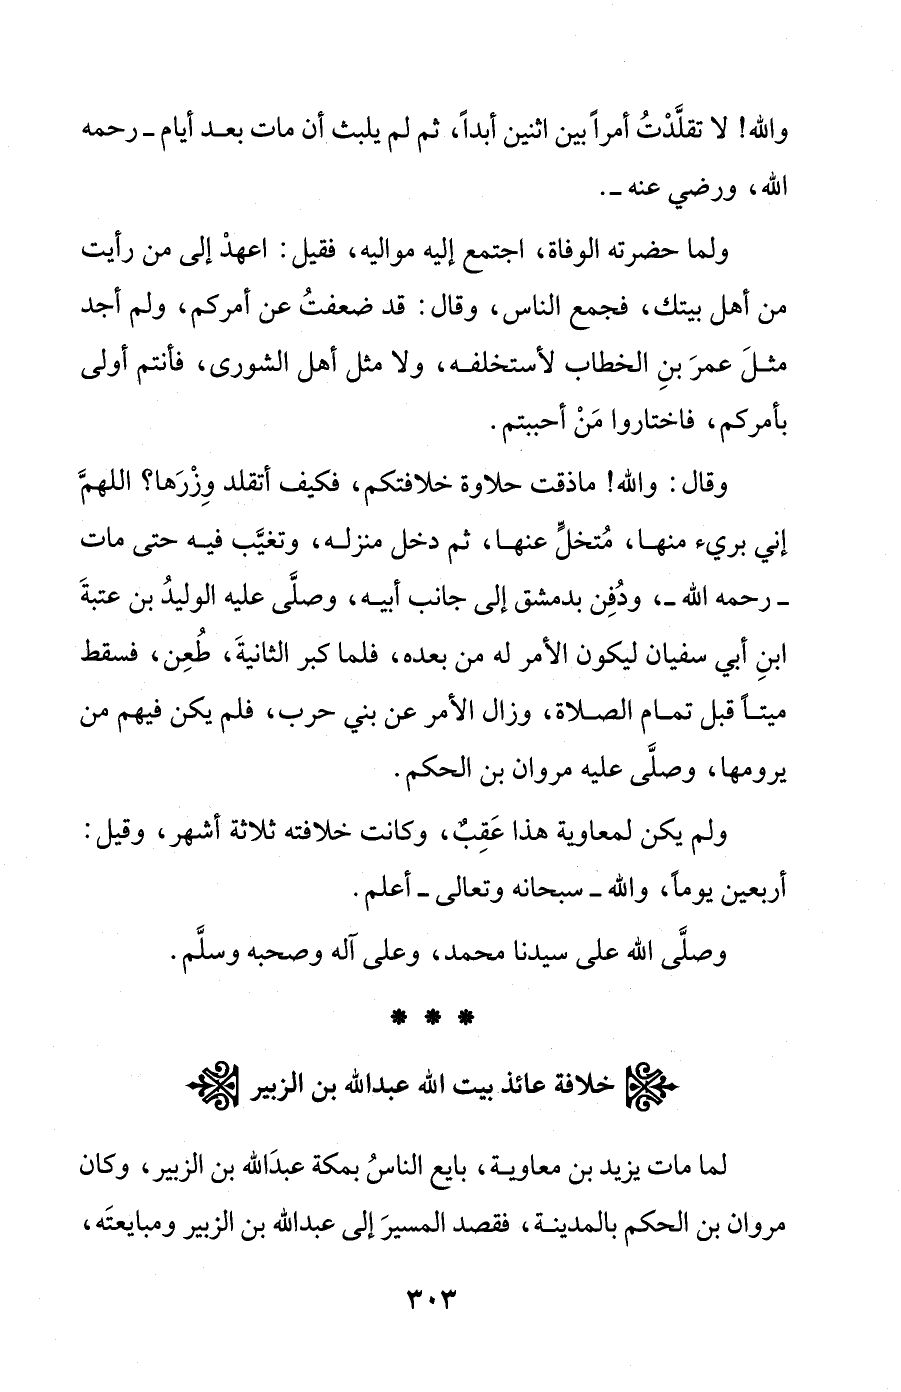 والله! لا تقلَّدْتُ أمراً بين اثنين أبداً، ثم لم يلبث أن مات بعد أيام ـ رحمه
الله، ورضي عنه ـ.
ولما حضرته الوفاة، اجتمع إليه مواليه، فقيل: اعهدْ إلى من رأيت
من أهل بيتك، فجمع الناس، وقال: قد ضعفتُ عن أمركم، ولم أجد
مثلَ عمرَ بنِ الخطاب لأستخلفه، ولا مثل أهل الشورى، فأنتم أولى
بأمركم، فاختاروا مَنْ أحببتم.
وقال: والله! ماذقت حلاوة خلافتكم، فكيف أتقلد وِزْرَها؟ اللهمَّ
إني بريء منها، مُتخلٍّ عنها، ثم دخل منزله، وتغيَّب فيه حتى مات
ـ رحمه الله ـ، ودُفِن بدمشق إلى جانب أبيه، وصلَّى عليه الوليدُ بن عتبةَ
ابنِ أبي سفيان ليكون الأمر له من بعده، فلما كبر الثانيةَ، طُعِن، فسقط
ميتاً قبل تمام الصلاة، وزال الأمر عن بني حرب، فلم يكن فيهم من
يرومها، وصلَّى عليه مروان بن الحكم.
ولم يكن لمعاوية هذا عَقِبٌ، وكانت خلافته ثلاثة أشهر، وقيل:
أربعين يوماً، والله ـ سبحانه وتعالى ـ أعلم.
وصلَّى الله على سيدنا محمد، وعلى آله وصحبه وسلَّم.
* * *
خلافة عائذ بيت الله عبدالله بن الزبير
لما مات يزيد بن معاوية، بايع الناسُ بمكة عبدَالله بن الزبير، وكان
مروان بن الحكم بالمدينة، فقصد المسيرَ إلى عبدالله بن الزبير ومبايعتَه،
٣٠٣